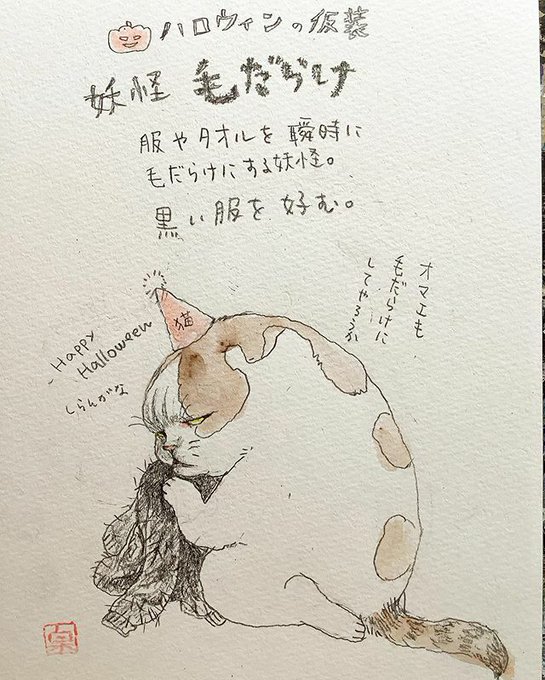 ハロウィンの仮装
妖怪 毛だらけ
服やタオルを瞬時に
毛だらけにする妖怪。
黒い服を好む。
オマエも
毛だらけに
してやろうか
猫
Happy
Halloween
しらんがな